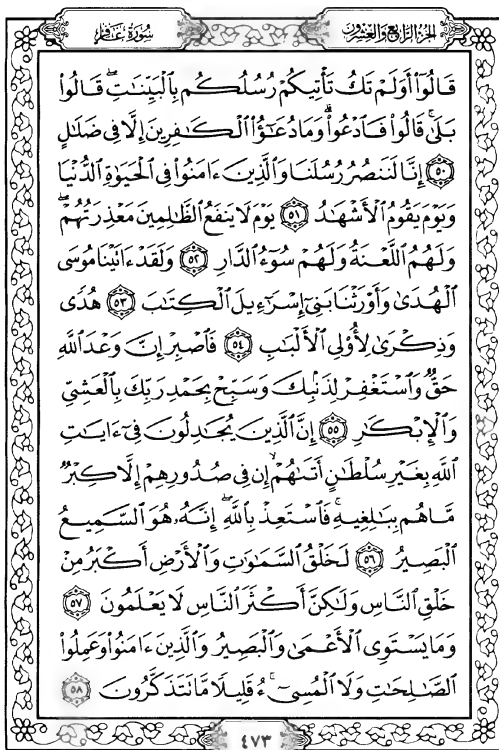 سُورَةُ غَافِرٍ
الجُزْءُ الرَّابِعُ وَالعِشْرُونَ
قَالُوٓا۟ أَوَلَمْ تَكُ تَأْتِيكُمْ رُسُلُكُم بِٱلْبَيِّنَٰتِ ۖ قَالُوا۟
بَلَىٰ ۚ قَالُوا۟ فَٱدْعُوا۟ ۗ وَمَا دُعَٰٓؤُا۟ ٱلْكَٰفِرِينَ إِلَّا فِى ضَلَٰلٍ
﴿٥٠﴾ إِنَّا لَنَنصُرُ رُسُلَنَا وَٱلَّذِينَ ءَامَنُوا۟ فِى ٱلْحَيَوٰةِ ٱلدُّنْيَا
وَيَوْمَ يَقُومُ ٱلْأَشْهَٰدُ ﴿٥١﴾ يَوْمَ لَا يَنفَعُ ٱلظَّٰلِمِينَ مَعْذِرَتُهُمْ ۖ
وَلَهُمُ ٱللَّعْنَةُ وَلَهُمْ سُوٓءُ ٱلدَّارِ ﴿٥٢﴾ وَلَقَدْ ءَاتَيْنَا مُوسَى
ٱلْهُدَىٰ وَأَوْرَثْنَا بَنِىٓ إِسْرَٰٓءِيلَ ٱلْكِتَٰبَ ﴿٥٣﴾ هُدًى
وَذِكْرَىٰ لِأُو۟لِى ٱلْأَلْبَٰبِ ﴿٥٤﴾ فَٱصْبِرْ إِنَّ وَعْدَ ٱللَّهِ
حَقٌّ وَٱسْتَغْفِرْ لِذَنۢبِكَ وَسَبِّحْ بِحَمْدِ رَبِّكَ بِٱلْعَشِىِّ
وَٱلْإِبْكَٰرِ ﴿٥٥﴾ إِنَّ ٱلَّذِينَ يُجَٰدِلُونَ فِىٓ ءَايَٰتِ
ٱللَّهِ بِغَيْرِ سُلْطَٰنٍ أَتَىٰهُمْ ۙ إِن فِى صُدُورِهِمْ إِلَّا كِبْرٌ
مَّا هُم بِبَٰلِغِيهِ ۚ فَٱسْتَعِذْ بِٱللَّهِ ۖ إِنَّهُۥ هُوَ ٱلسَّمِيعُ
ٱلْبَصِيرُ ﴿٥٦﴾ لَخَلْقُ ٱلسَّمَٰوَٰتِ وَٱلْأَرْضِ أَكْبَرُ مِنْ
خَلْقِ ٱلنَّاسِ وَلَٰكِنَّ أَكْثَرَ ٱلنَّاسِ لَا يَعْلَمُونَ ﴿٥٧﴾
وَمَا يَسْتَوِى ٱلْأَعْمَىٰ وَٱلْبَصِيرُ وَٱلَّذِينَ ءَامَنُوا۟ وَعَمِلُوا۟
ٱلصَّٰلِحَٰتِ وَلَا ٱلْمُسِىٓءُ ۚ قَلِيلًا مَّا تَتَذَكَّرُونَ ﴿٥٨﴾
٤٧٣